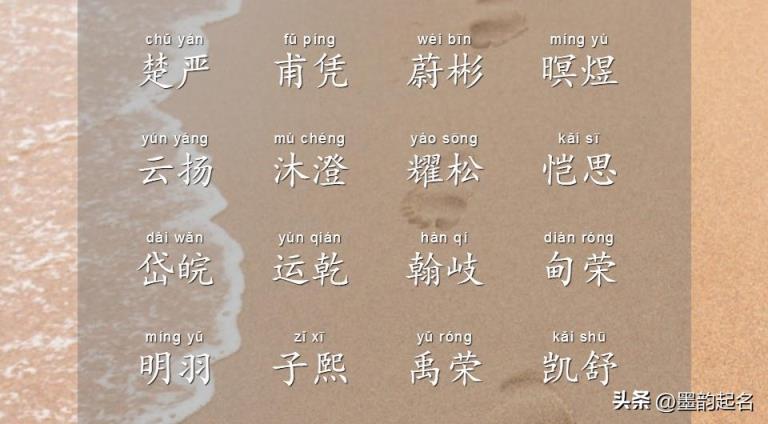 chǔ yán fǔ píng wèi bīn míng yù
楚严 甫凭 蔚彬 暝煜
yún yáng mù chéng yào sōng kǎi sī
云扬 沐澄 耀松 恺思
dài wǎn yùn qián hàn qí diàn róng
岱皖 运乾 翰岐 甸荣
míng yǔ zǐ xī yǔ róng kǎi shū
明羽 子熙 禹荣 凯舒
头条 @墨韵起名